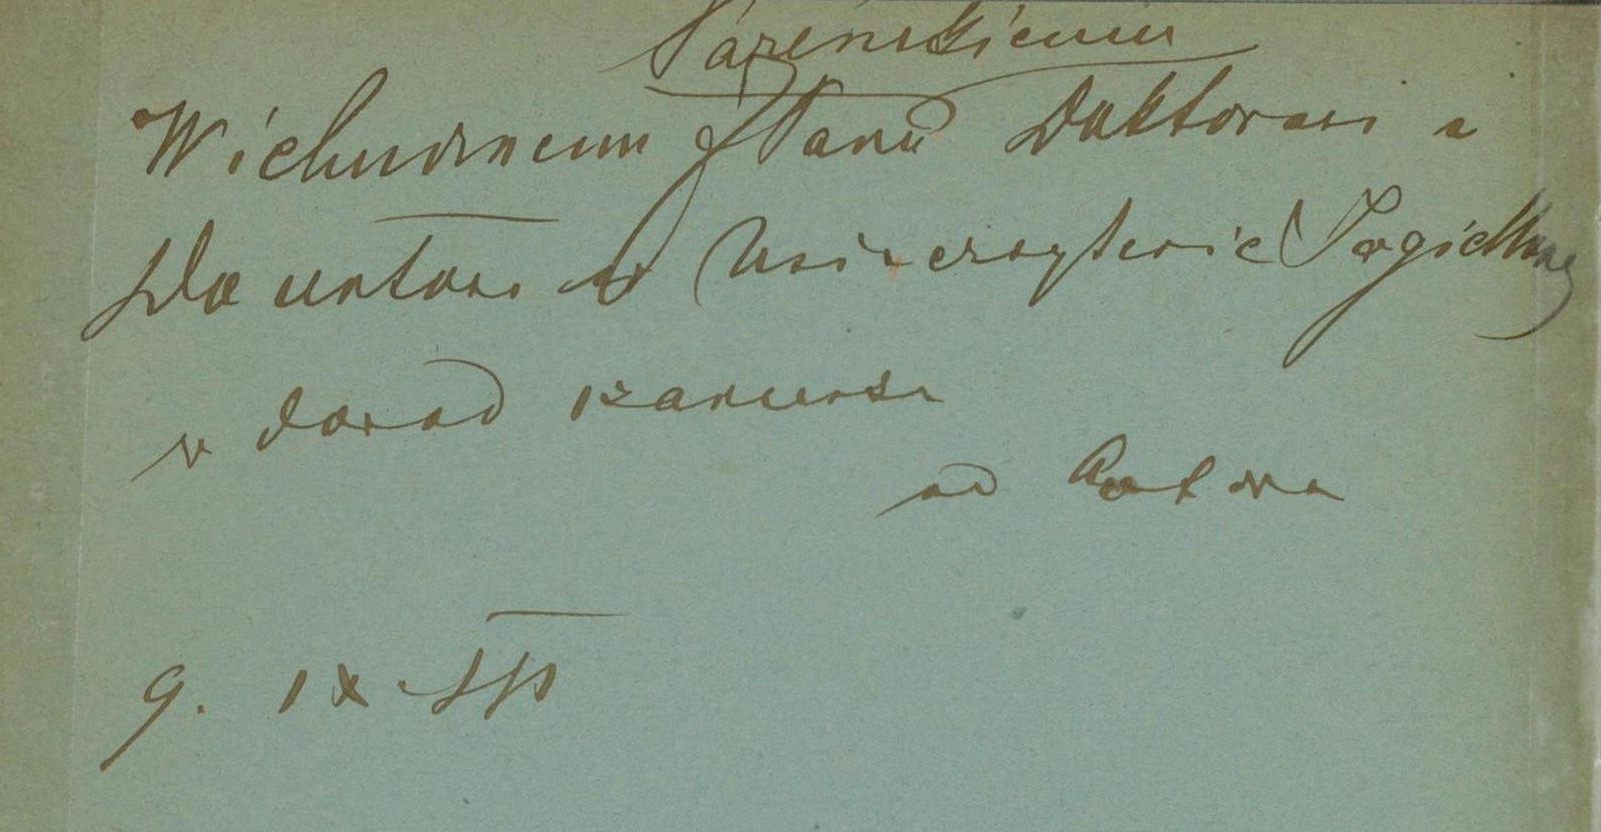 Pareńskiemu
Wielmożnemu Panu Doktorowi
Docentowi w Uniwersytecie Jagiellońs
w dowód szacunku
od Autora
9. IX